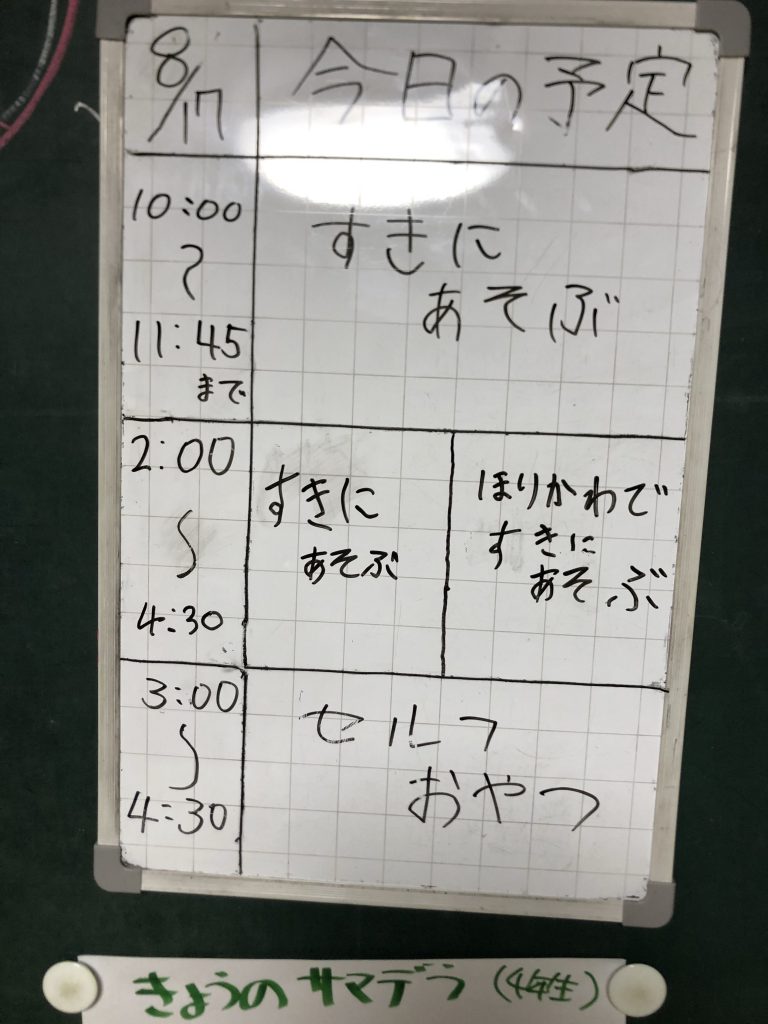 8/17 今日の予定
10:00
〜
11:45
まで
すきに
あそぶ
2:00
〜
4:30
すきに
あそぶ
ほりかわで
すきに
あそぶ
3:00
〜
4:30
セルフ
おやつ
きょうのサマデラ(4年生)